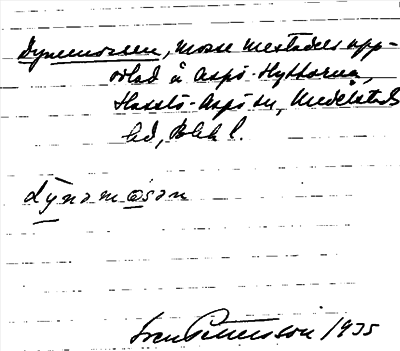 Dynemossen, mosse mestadels upp-
odlad å Aspö-Hyttorna,
Hasslö-Aspö sn, Medelstads
hd, Blek l.
dȳnəmɷsən
Sven Petersson 1935